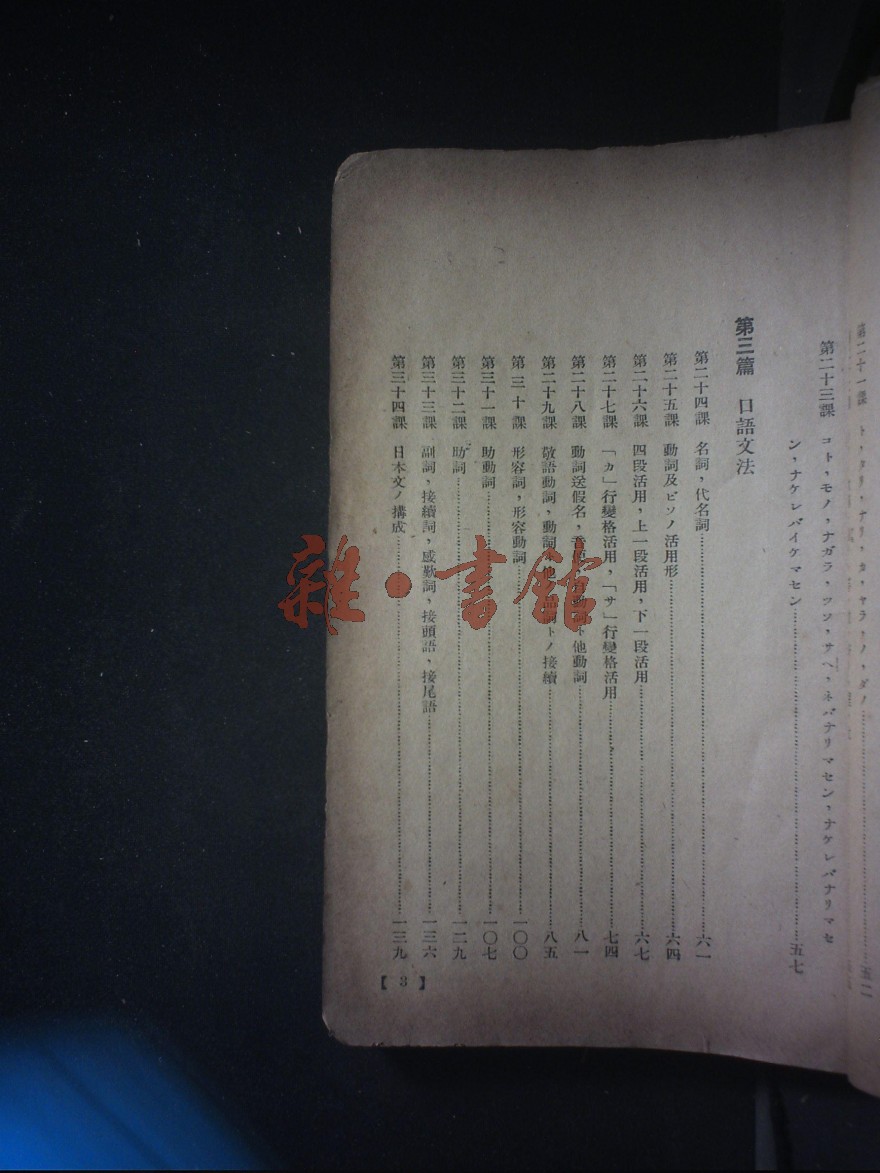 第二十一課 ト,タリ,ナリ,タ,ヤラ,ノ,ダノ……五二
第二十三課 コト,モノ,ナガラ,ツツ,サヘ,ネバナリマセン,ナケレバナリマセ
ン,ナケレバイケマセン……五七
第三篇 口語文法
第二十四課 名詞,代名詞……六一
第二十五課 動詞及ビソノ活用形……六四
第二十六課 四段活用,上一段活用,下一段活用……六七
第二十七課 「カ」行變格活用,「サ」行變格活用……七四
第二十八課 動詞送假名,音便,自動詞ト他動詞……八一
第二十九課 敬語動詞,動詞ト他ノ品詞トノ接續……八五
第三十課 形容詞,形容動詞……一〇〇
第三十一課 助動詞……一〇七
第三十二課 助詞……一二九
第三十三課 副詞,接續詞,感歎詞,接頭語,接尾語……一三六
第三十四課 日本文ノ構成……一三九
【 3 】
雜·書館